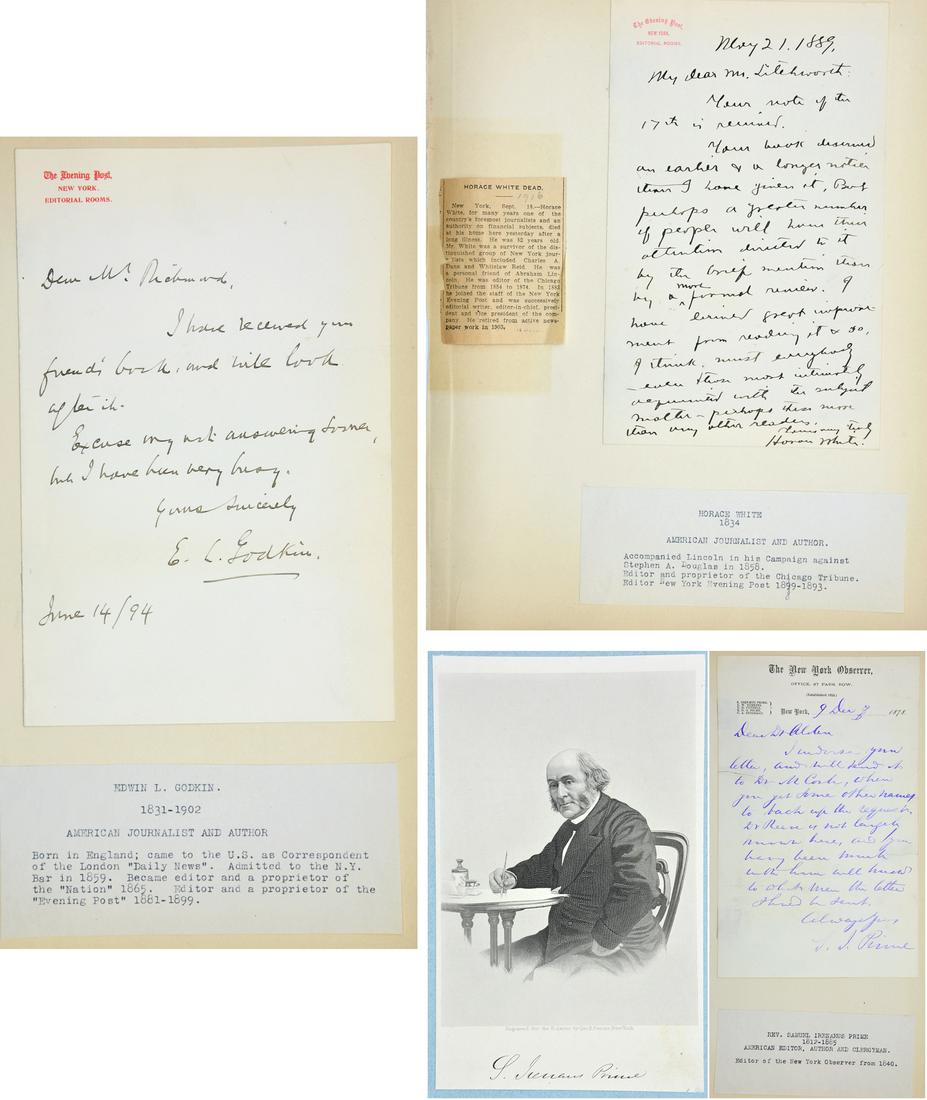 The Evening Post,
NEW YORK.
EDITORIAL ROOMS.
Dear Mr. Richmond,
I have received your
friend's book, and will look
after it.
Excuse my not answering sooner,
but I have been very busy.
Yours Sincerely
E. L. Godkin.
June 14/94
EDWIN L. GODKIN.
1831-1902
AMERICAN JOURNALIST AND AUTHOR
Born in England; came to the U.S. as Correspondent
of the London "Daily News". Admitted to the N.Y.
Bar in 1859. Became editor and a proprietor of
the "Nation" 1865. Editor and a proprietor of the
"Evening Post" 1881-1899.
The Evening Post,
NEW YORK.
EDITORIAL ROOMS.
May 21. 1889.
My dear Mr. Letchworth:
Your note of the
17th is received.
Your book deserved
an earlier & a longer notice
than I have given it, But
perhaps a greater number
of people will have their
attention directed to it
by the brief mention than
by a more formal review. I
have derived great improve-
ment from reading it & so,
I think, must everybody
- even those most intimately
acquainted with the subject
matter - perhaps these more
than any other readers.
Yours very truly
Horace White.
HORACE WHITE DEAD.
1916
New York, Sept. 18.—Horace
White, for many years one of the
country's foremost journalists and an
authority on financial subjects, died
at his home here yesterday after a
long illness. He was 82 years old.
Mr. White was a survivor of the dis-
tinguished group of New York jour-
nalists which included Charles A.
Dana and Whitelaw Reid. He was
a personal friend of Abraham Lin-
coln. He was editor of the Chicago
Tribune from 1864 to 1874. In 1883
he joined the staff of the New York
Evening Post and was successively
editorial writer, editor-in-chief, presi-
dent and vice president of the com-
pany. He retired from active news-
paper work in 1903.
HORACE WHITE
1834
AMERICAN JOURNALIST AND AUTHOR.
Accompanied Lincoln in his Campaign against
Stephen A. Douglas in 1858.
Editor and proprietor of the Chicago Tribune.
Editor New York Evening Post 1899-1893.
S. Irenaeus Prime
The New York Observer,
OFFICE, 37 PARK ROW.
New York, 9 Dec 187
Dear Dr Alden
I endorse your
letter, and will send it
to Dr McCosh, when
you get some other names
to back up the request.
Dr is not largely
known here, and you
have been much
with him will
to what men the letter
should be sent.
Always yrs
S. I. Prime
REV. SAMUEL IRENAEUS PRIME
1812-1885
AMERICAN EDITOR, AUTHOR AND CLERGYMAN.
Editor of the New York Observer from 1840.